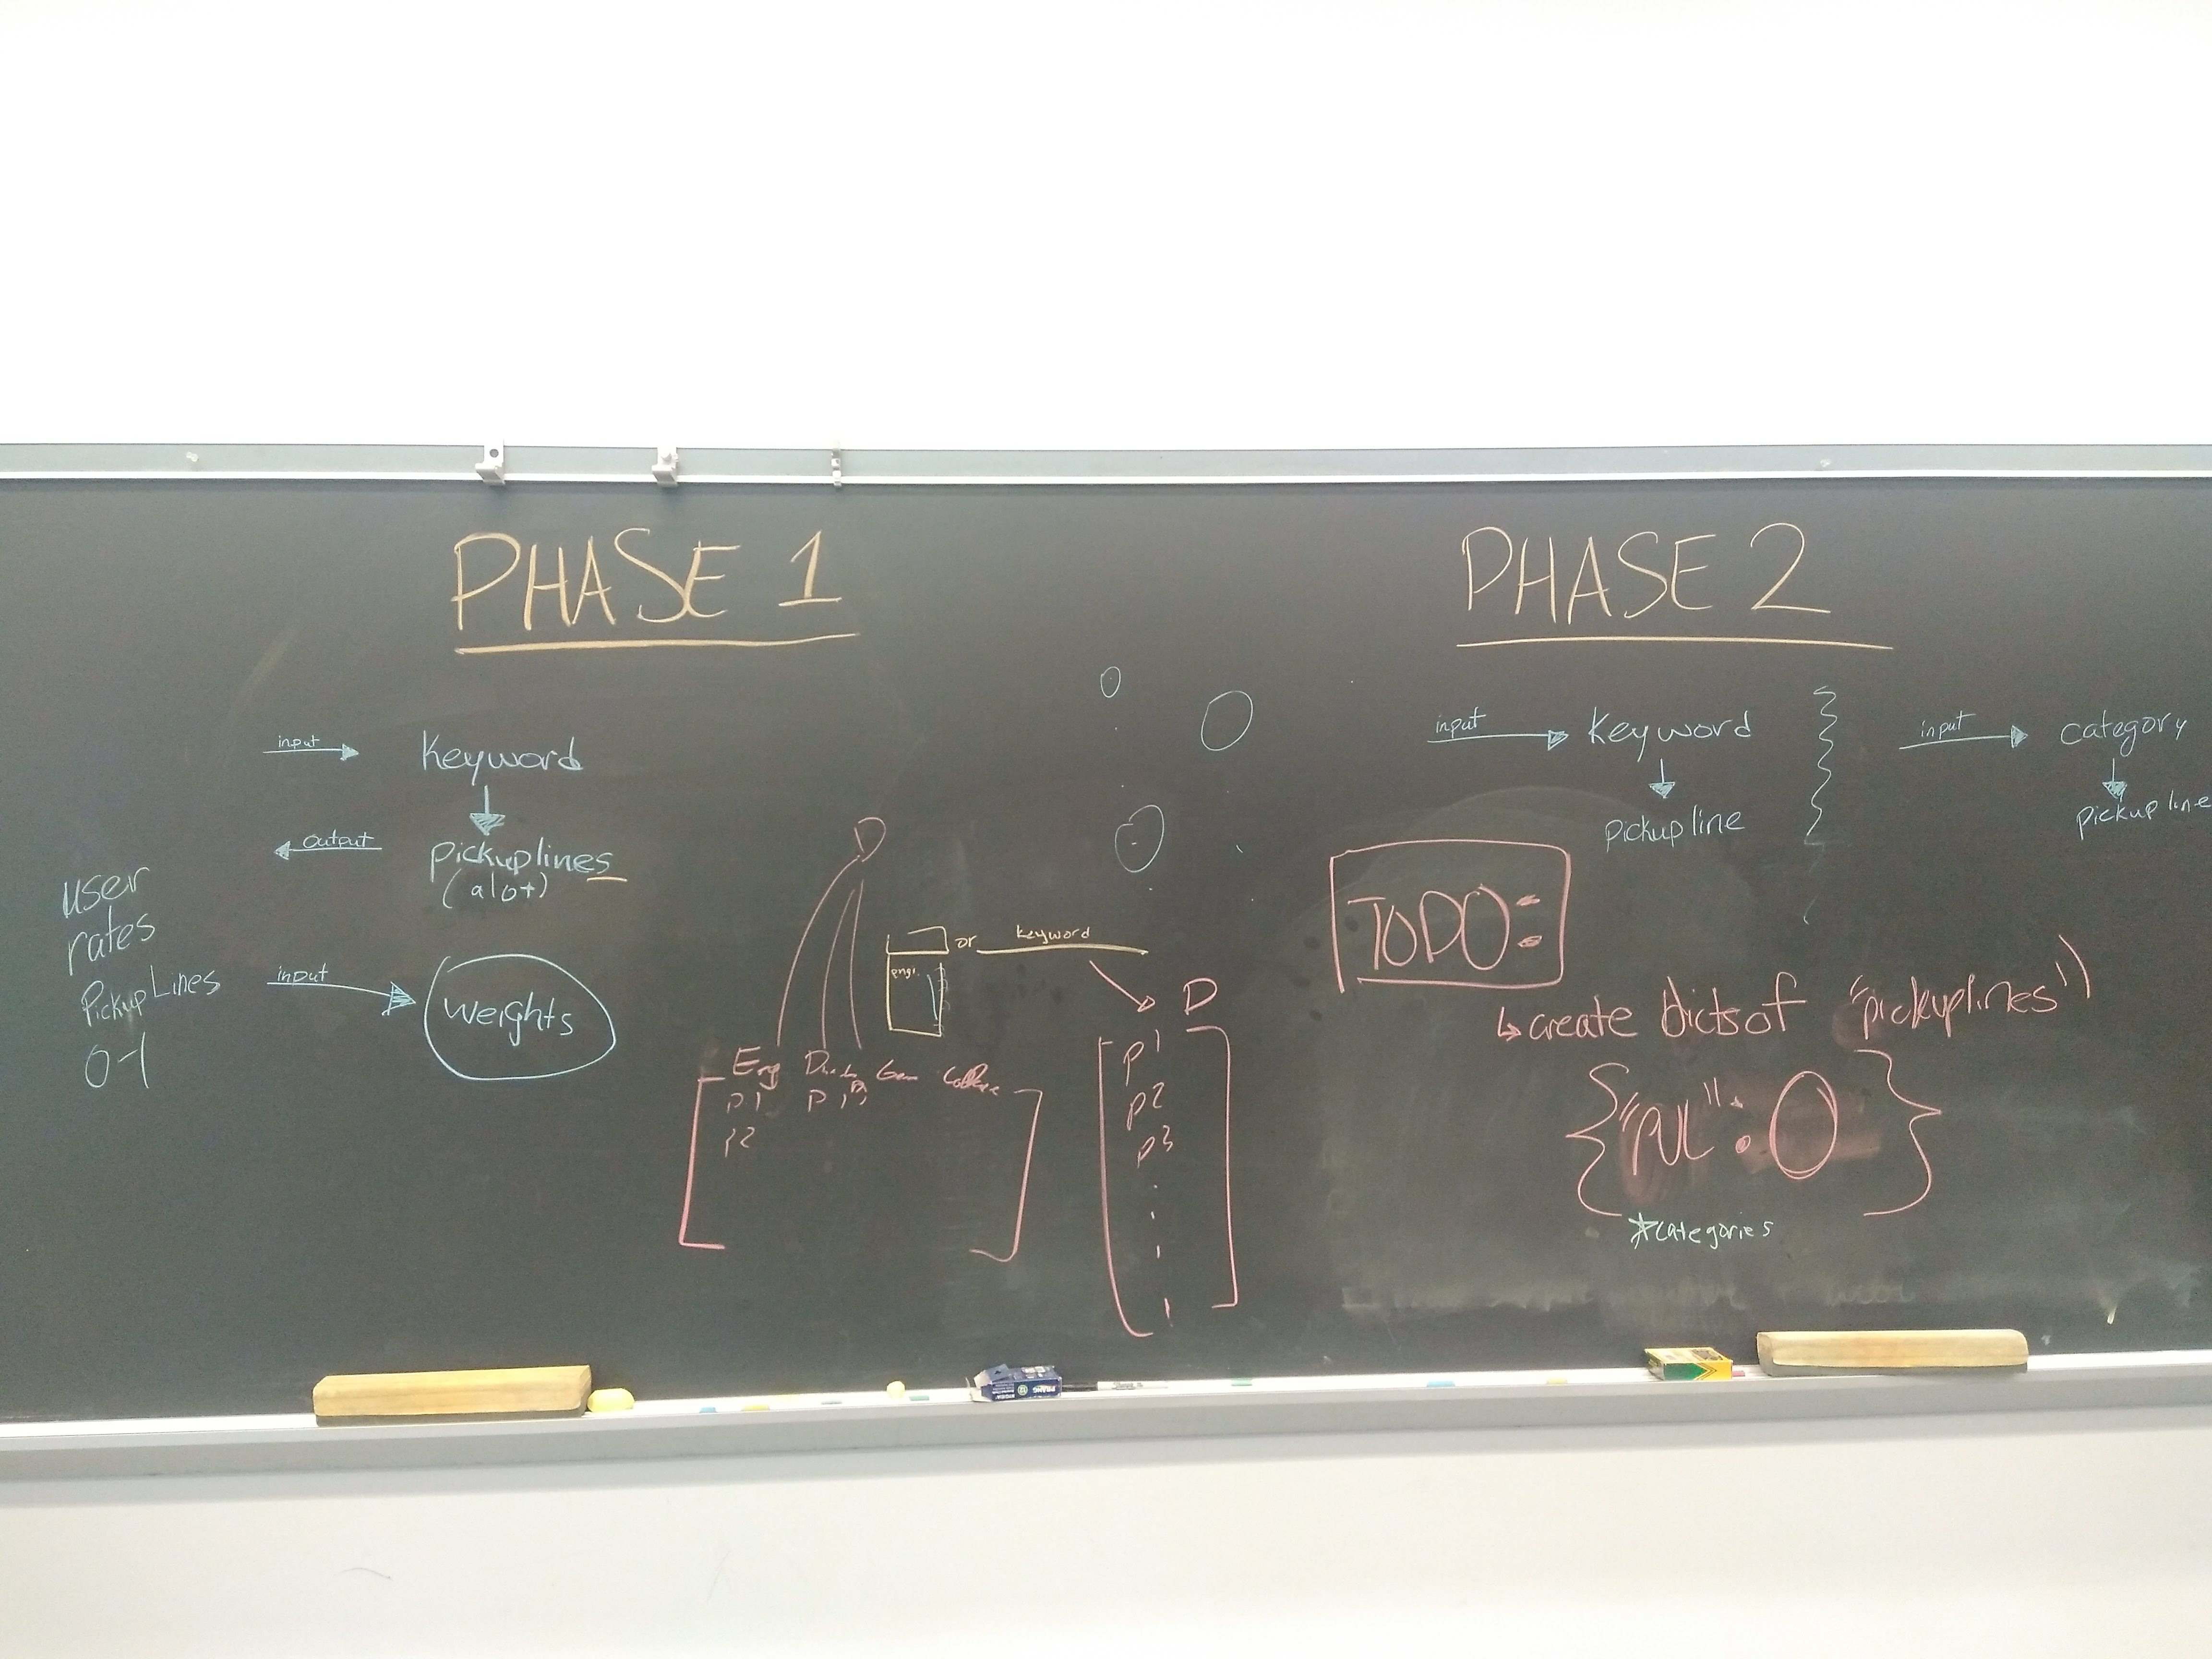 PHASE 1
input
keyword
output
pickuplines
(alot)
user
rates
PickupLines
0-1
input
weights
D
or keyword
engi.
Eng
p1
p2
D
p1
p2
p3
PHASE 2
input
keyword
pickup line
input
category
pickup line
TODO:
create dicts of "pickuplines"
{"PUL": 0}
*categories
PRANG